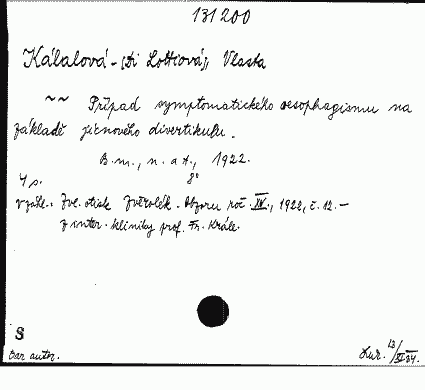 131200
Kálalová-(Di Lottiová), Vlasta
~~ Případ symptomatického oesophagismu na
základě jícnového divertikulu.
B. m., n. a t., 1922.
4 s. 8°
V záhl.: Zvl. otisk Zvěrolék. Obzoru roč. XV., 1922, č. 12. —
Z inter. kliniky prof. Fr. Krále.
S
Dar autor.